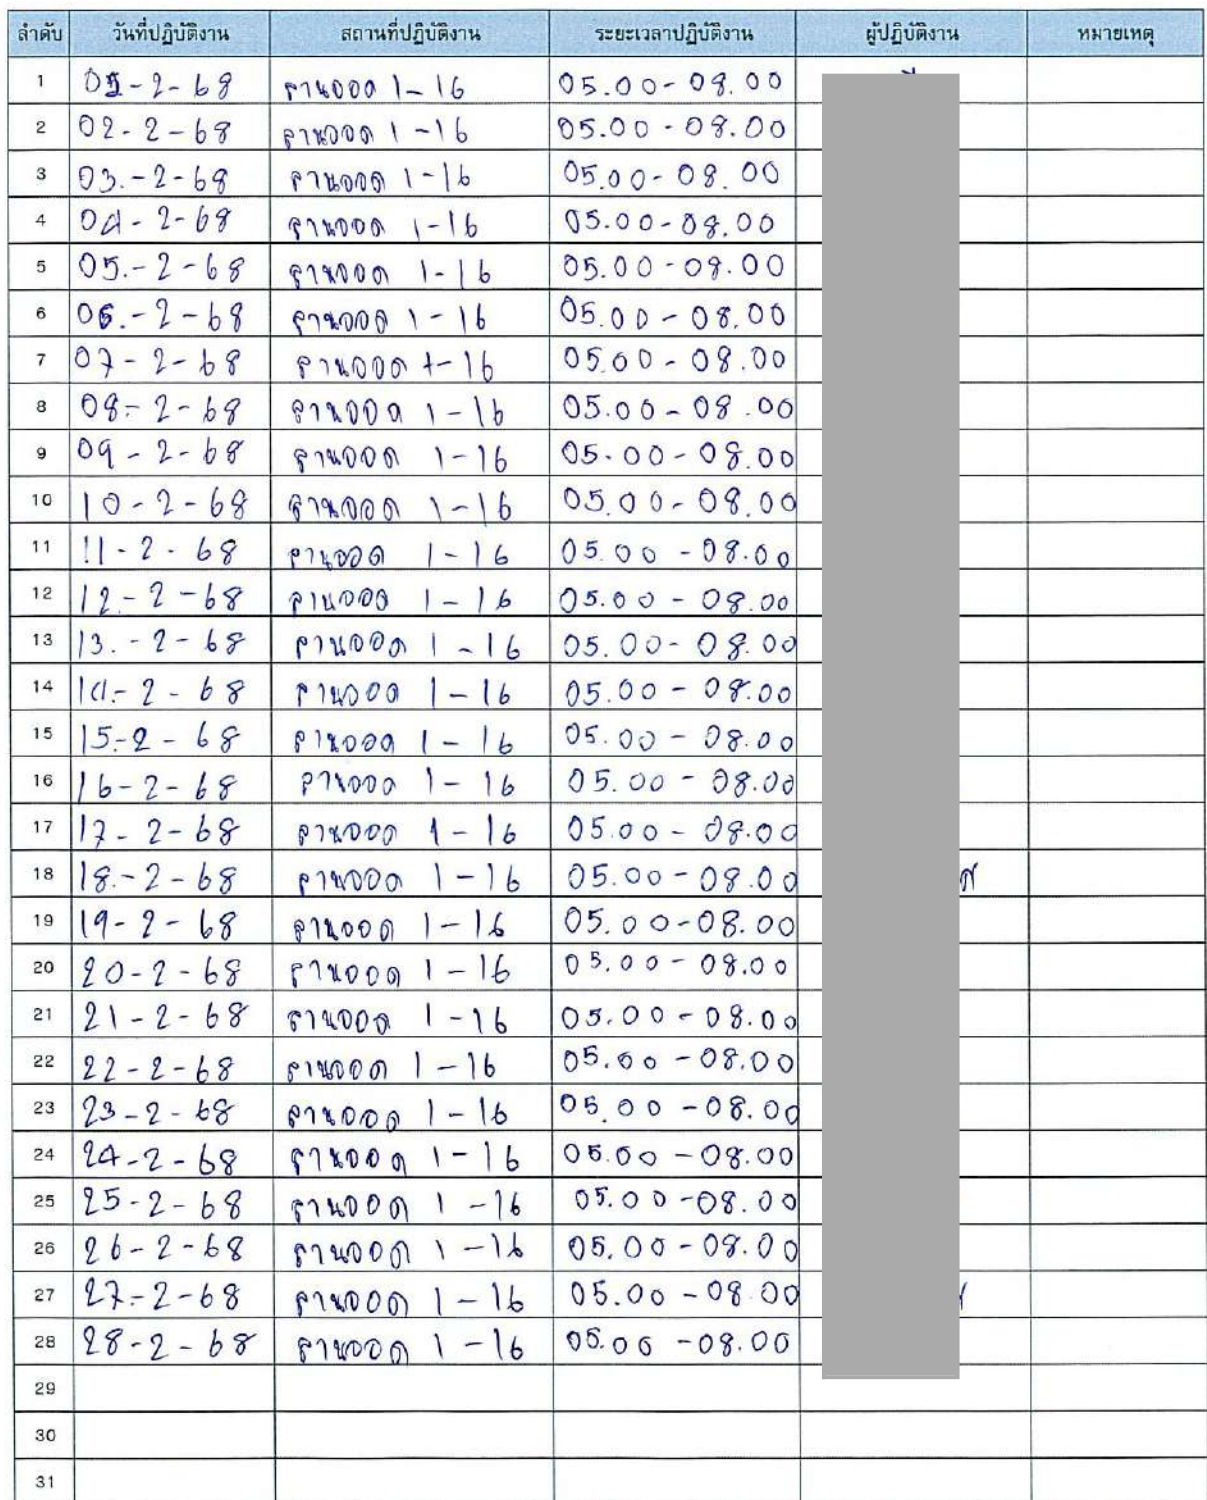 ลำดับ วันที่ปฏิบัติงาน สถานที่ปฏิบัติงาน ระยะเวลาปฏิบัติงาน ผู้ปฏิบัติงาน หมายเหตุ
1 01-2-68 ลานจอด 1-16 05.00-08.00
2 02-2-68 ลานจอด 1-16 05.00-08.00
3 03.-2-68 ลานจอด 1-16 05.00-08.00
4 04-2-68 ลานจอด 1-16 05.00-08.00
5 05.-2-68 ลานจอด 1-16 05.00-08.00
6 06.-2-68 ลานจอด 1-16 05.00-08.00
7 07-2-68 ลานจอด 1-16 05.00-08.00
8 08-2-68 ลานจอด 1-16 05.00-08.00
9 09-2-68 ลานจอด 1-16 05.00-08.00
10 10-2-68 ลานจอด 1-16 05.00-08.00
11 11-2-68 ลานจอด 1-16 05.00-08.00
12 12-2-68 ลานจอด 1-16 05.00-08.00
13 13.-2-68 ลานจอด 1-16 05.00-08.00
14 14-2-68 ลานจอด 1-16 05.00-08.00
15 15-2-68 ลานจอด 1-16 05.00-08.00
16 16-2-68 ลานจอด 1-16 05.00-08.00
17 17-2-68 ลานจอด 1-16 05.00-08.00
18 18.-2-68 ลานจอด 1-16 05.00-08.00
19 19-2-68 ลานจอด 1-16 05.00-08.00
20 20-2-68 ลานจอด 1-16 05.00-08.00
21 21-2-68 ลานจอด 1-16 05.00-08.00
22 22-2-68 ลานจอด 1-16 05.00-08.00
23 23-2-68 ลานจอด 1-16 05.00-08.00
24 24-2-68 ลานจอด 1-16 05.00-08.00
25 25-2-68 ลานจอด 1-16 05.00-08.00
26 26-2-68 ลานจอด 1-16 05.00-08.00
27 27-2-68 ลานจอด 1-16 05.00-08.00
28 28-2-68 ลานจอด 1-16 05.00-08.00
29
30
31